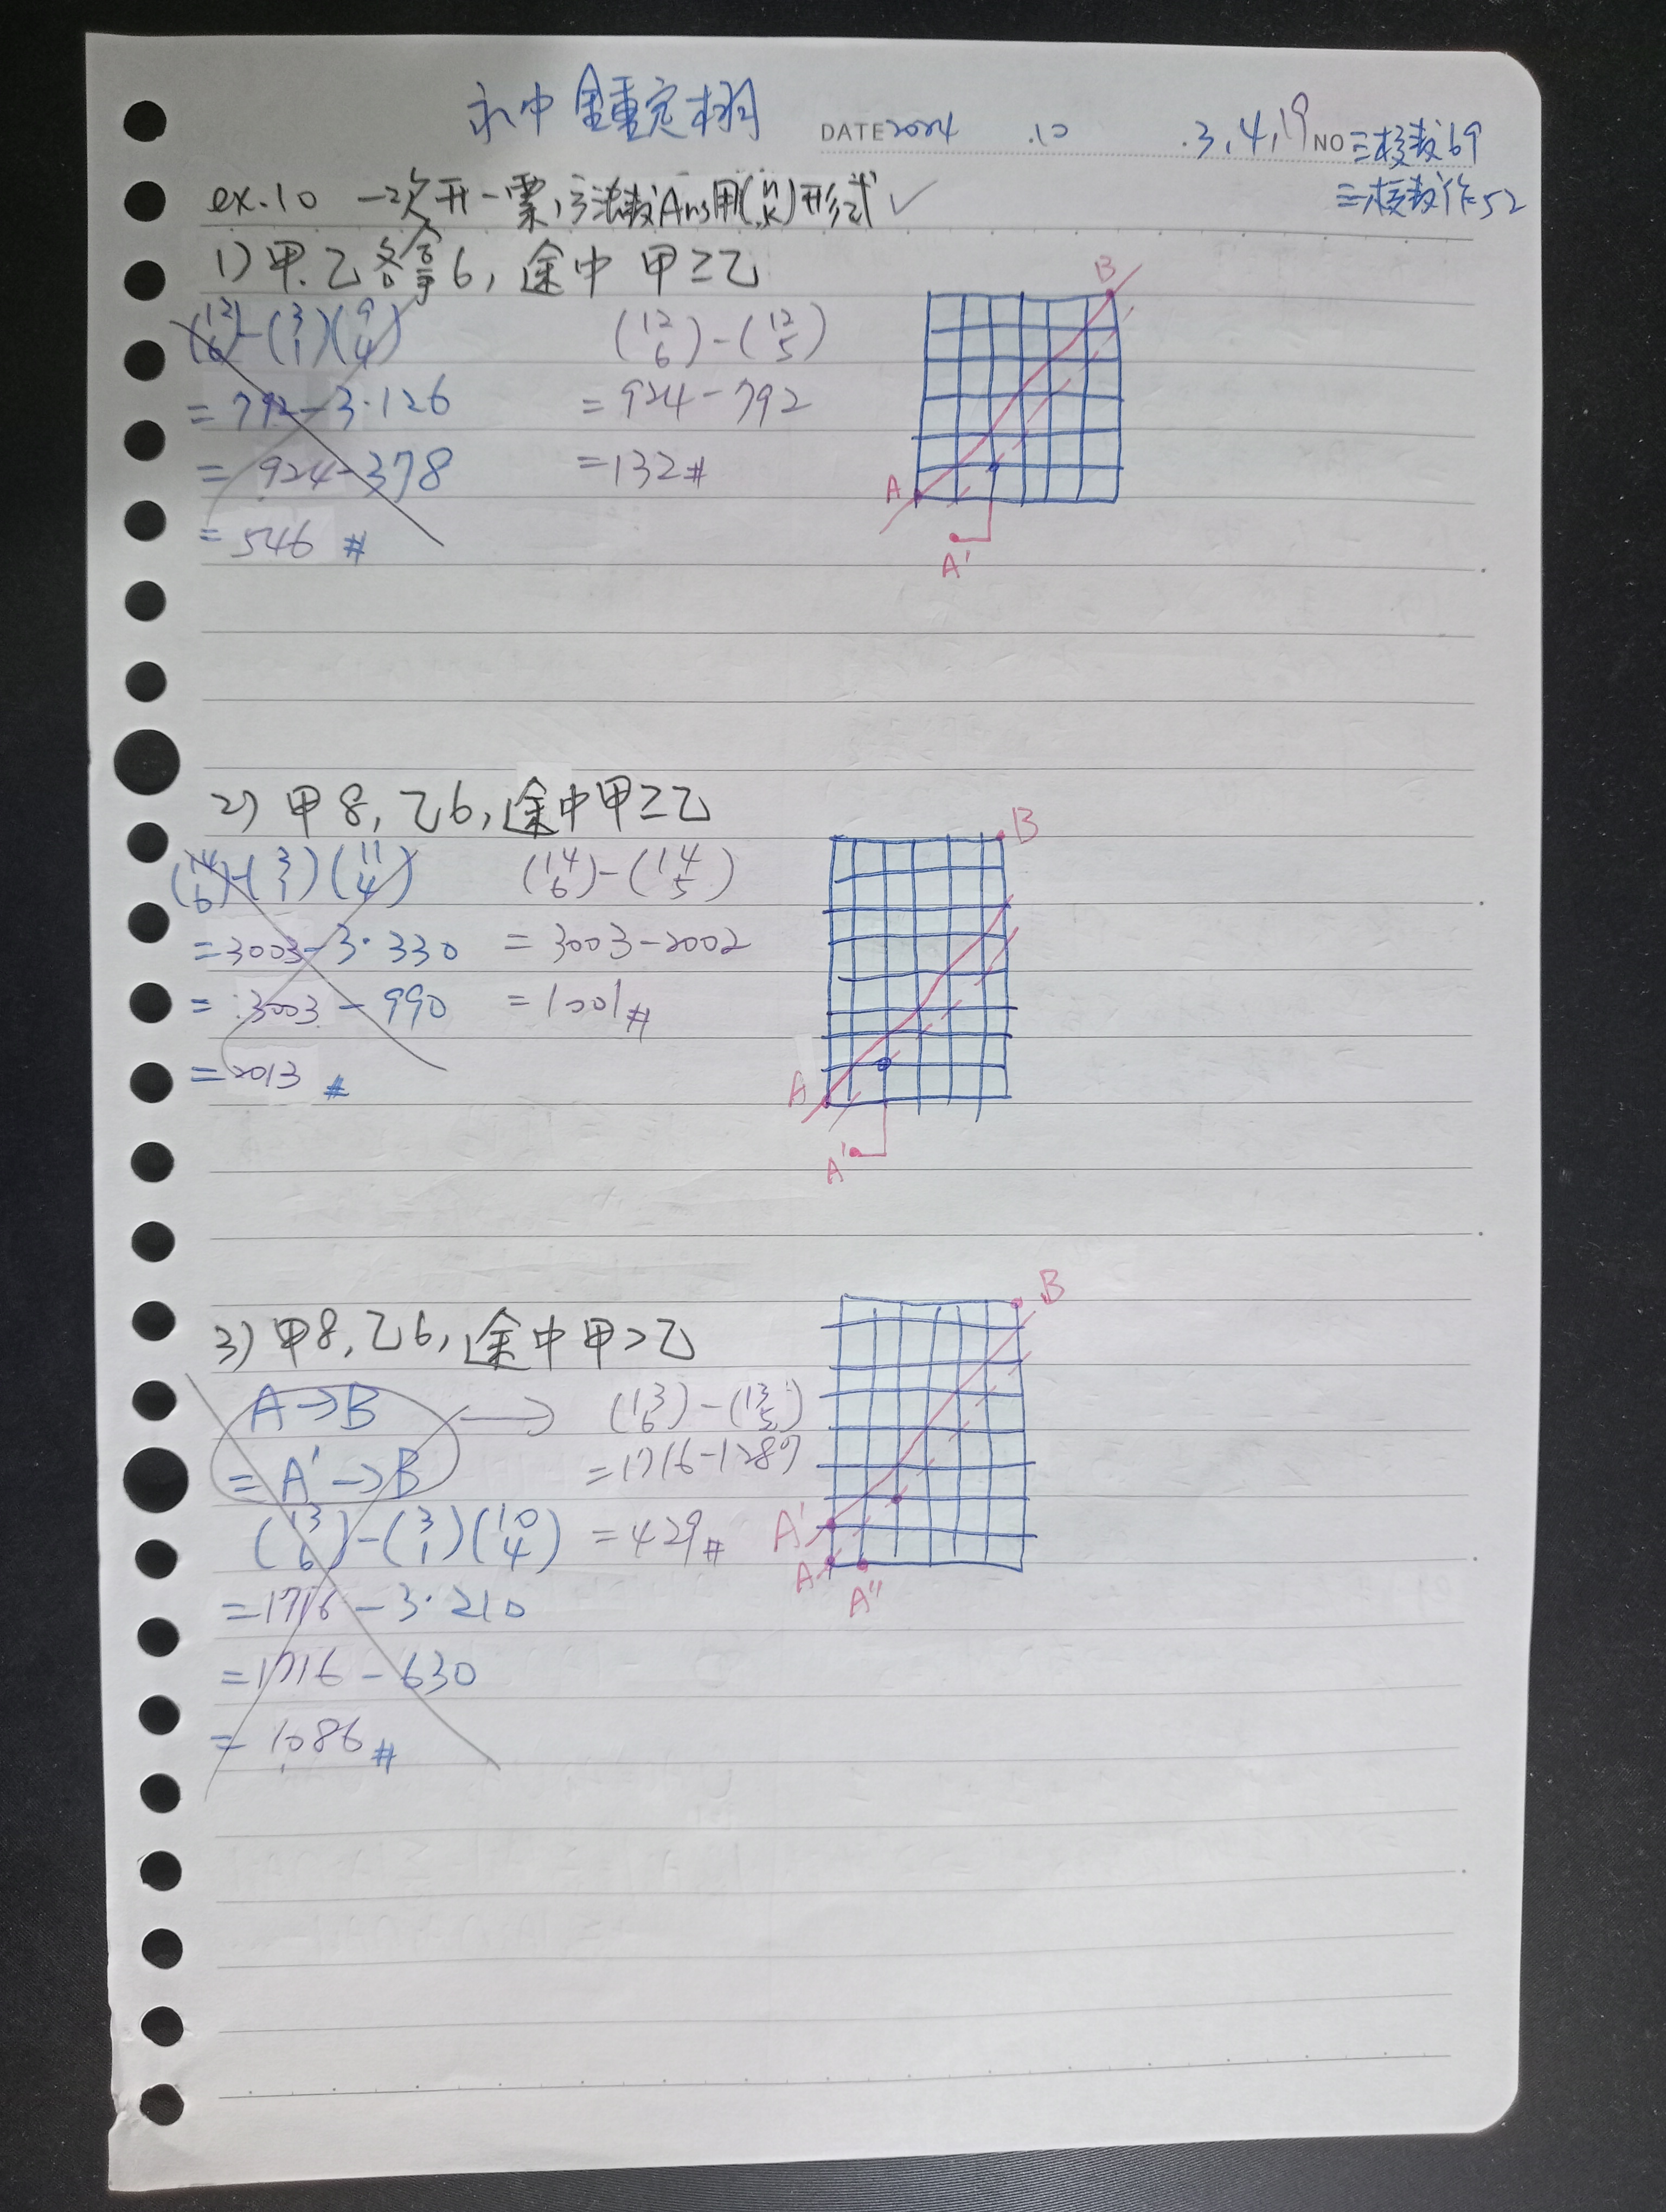 永中 鍾定栩 DATE 2024 .10 .3,4,19 NO 三授教69
三授教作52
ex.10 一次開一票,方法數Ans用(n k)形式✓
1) 甲、乙各拿6, 途中 甲≥乙
(12 6)-(3 1)(9 4)
= 792-3·126
= 924-378
= 546 #
(12 6)-(12 5)
= 924-792
=132#
B
A
A'
2) 甲8, 乙6, 途中甲≥乙
(14 6)-(3 1)(11 4)
=3003-3·330
= 3003-990
=2013 #
(14 6)-(14 5)
= 3003-2002
=1001#
B
A
A'
3) 甲8, 乙6, 途中甲>乙
A→B
= A'→B
→ (13 6)-(13 5)
=1716-1287
=429#
(13 6)-(3 1)(10 4)
=1716-3·210
=1716-630
= 1086#
B
A'
A
A''